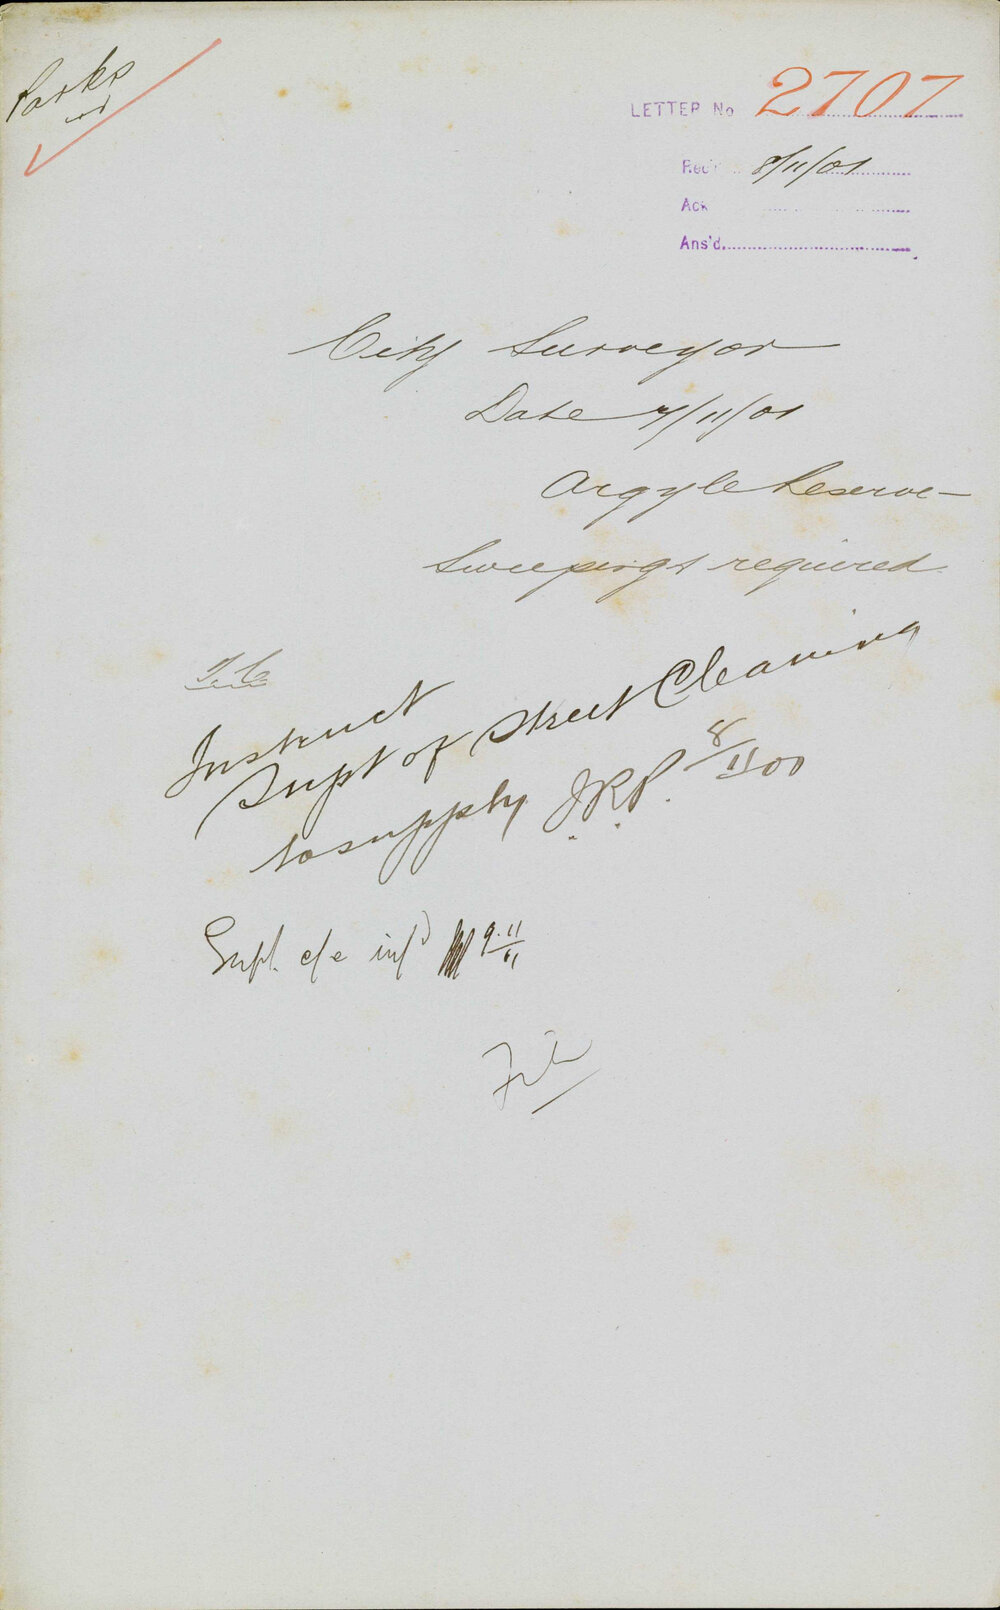 Parks
LETTER No 2707
Rec'd 8/11/01
Ack
Ans'd
City Surveyor
Date 7/11/01
Argyle Reserve -
Sweepings required
T.C.
Instruct
Supt of Street Cleaning
to supply J.R.P. 8/11/01
Supt. c/e inf'd 9.11/01
File